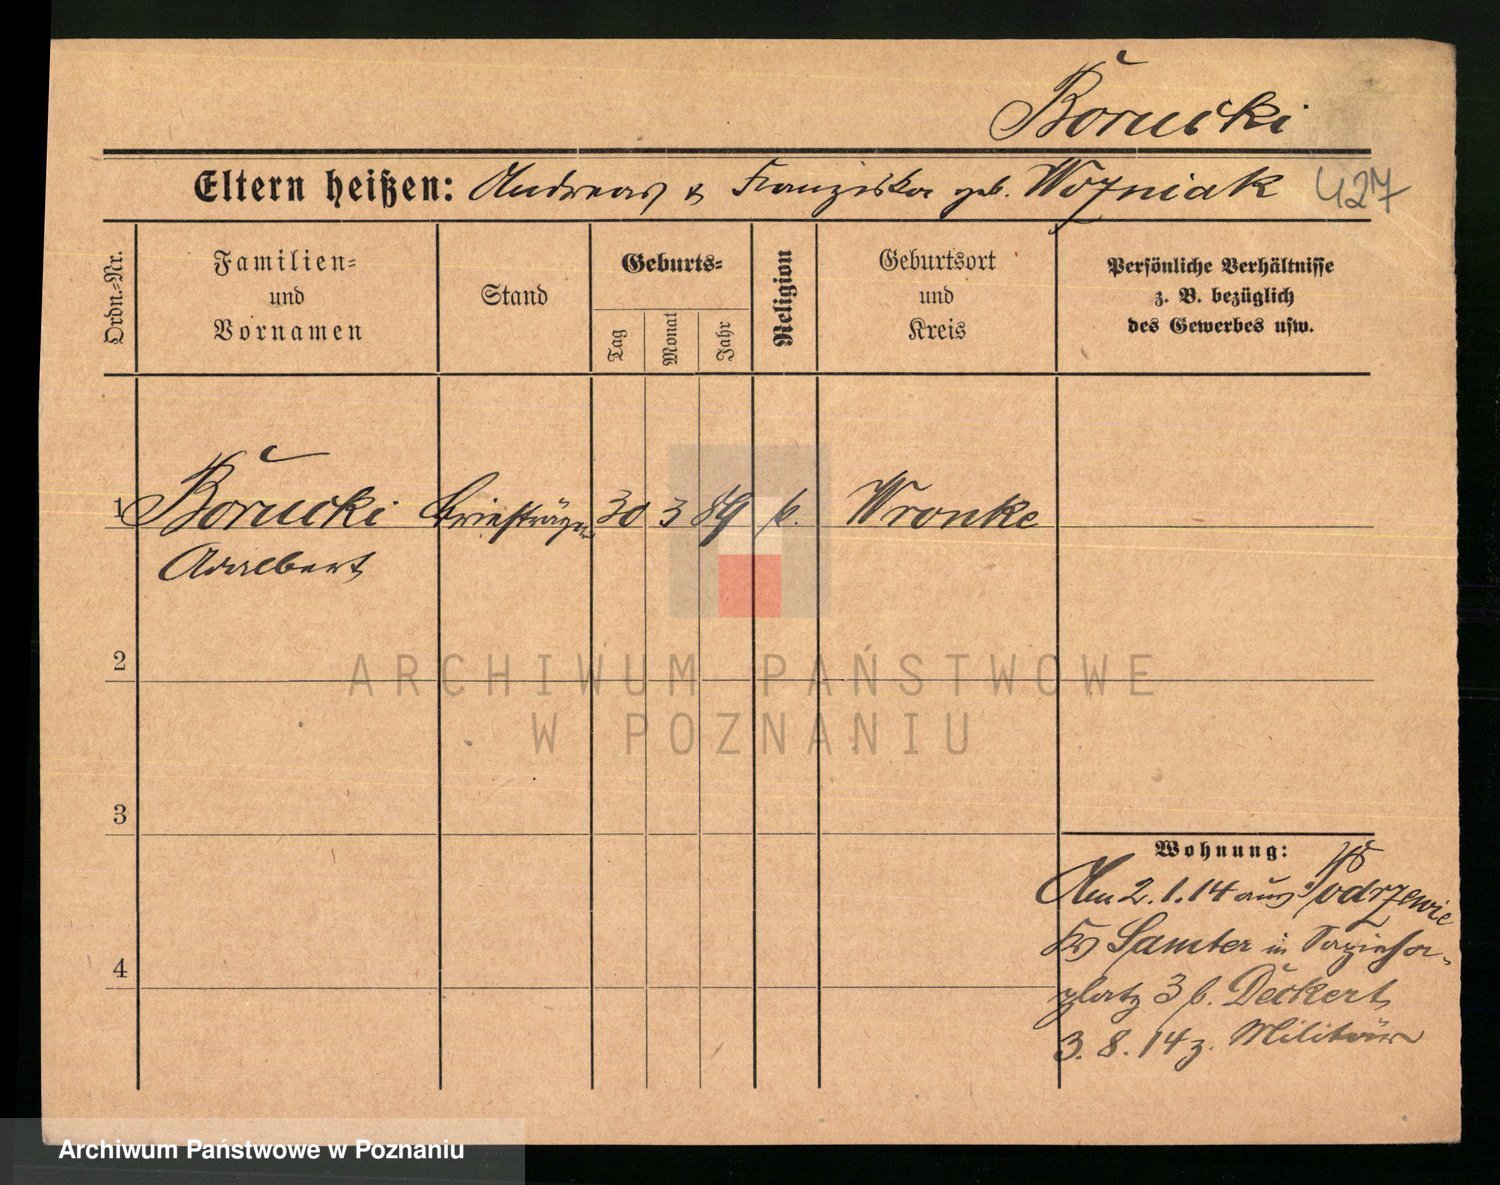 Borucki
Eltern heißen: Andreas & Franziska geb. Wozniak 427
Ordn.-Nr.
Familien-
und
Vornamen
Stand
Geburts-
Tag
Monat
Jahr
Religion
Geburtsort
und
Kreis
Persönliche Verhältnisse
z. B. bezüglich
des Gewerbes usw.
1 Borucki Briefträger 30 3 89 k. Wronke
Adalbert
2
ARCHIWUM PAŃSTWOWE
W POZNANIU
3
Wohnung:
Am 2.1.14 aus Podrzewie
Kr Samter in
platz 3 b. Deckert
4
3.8.14 z. Militär
Archiwum Państwowe w Poznaniu